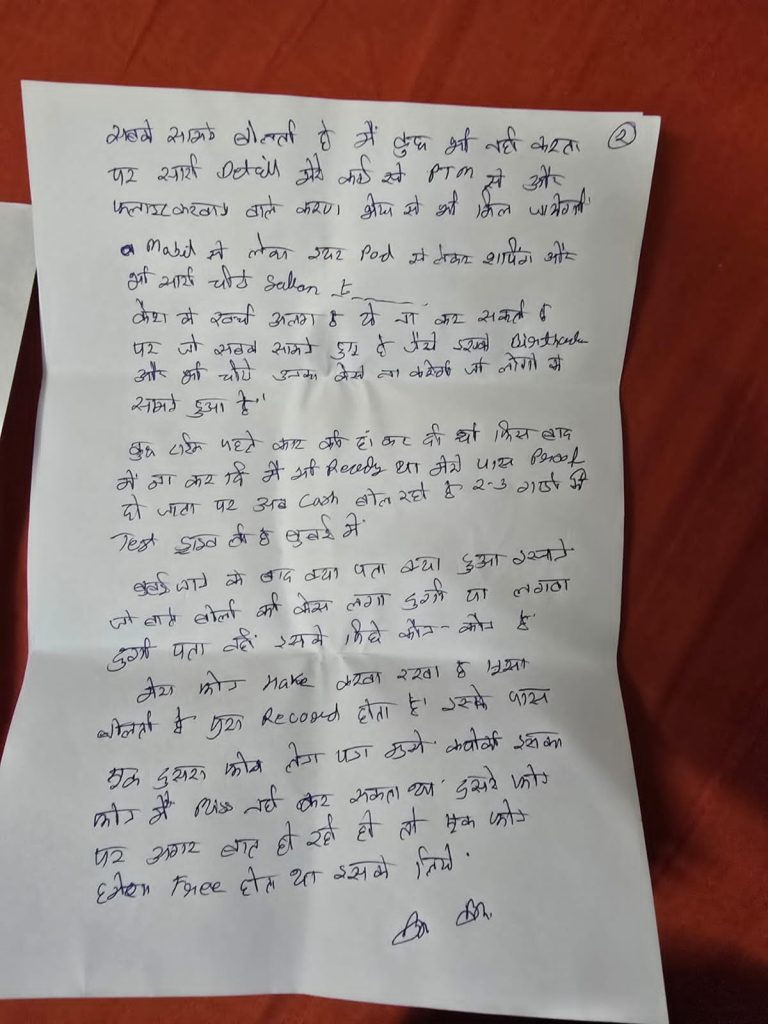 सबके सामने बोलती है मैं कुछ भी नहीं करता
②
पर सारी Detail मेरे कार्ड से PTM से और
वाले करण से भी मिल जायेगी
Mobil से लेकर Pod से लेकर शापिंग और
भी सारी चीजे Sallon है
कैश में खर्चा अलग है ये ना कर सकती है
पर जो सबके सामने हुए है जैसे इसका
और भी चीजे उनका कैसे ना करेगी जो लोगो के
सामने हुआ है"
कुछ टाईम पहले कार की हां कर दी थी फिर बाद
में ना कर दि मैं भी Ready था मेरे पास Proof
हो जाता पर अब Cash बोल रही है २-३ गाडी भी
Test ड्राइव ली है मुंबई में
मुंबई जाने के बाद क्या पता क्या हुआ इसने
जो बाते बोली की केस लगा दुंगी या लगवा
दुंगी पता नहीं इसके पिछे कौन-कौन है
मेरा फोन Hake करवा रखा है ऐसा
बोलती है पुरा Record होता है इसके पास
एक दुसरा फोन लेना पडा मुझे क्योंकी इसका
फोन मैं Miss नहीं कर सकता था दुसरे फोन
पर अगर बात हो रही हो तो एक फोन
हमेशा Free होता था इसके लिये.